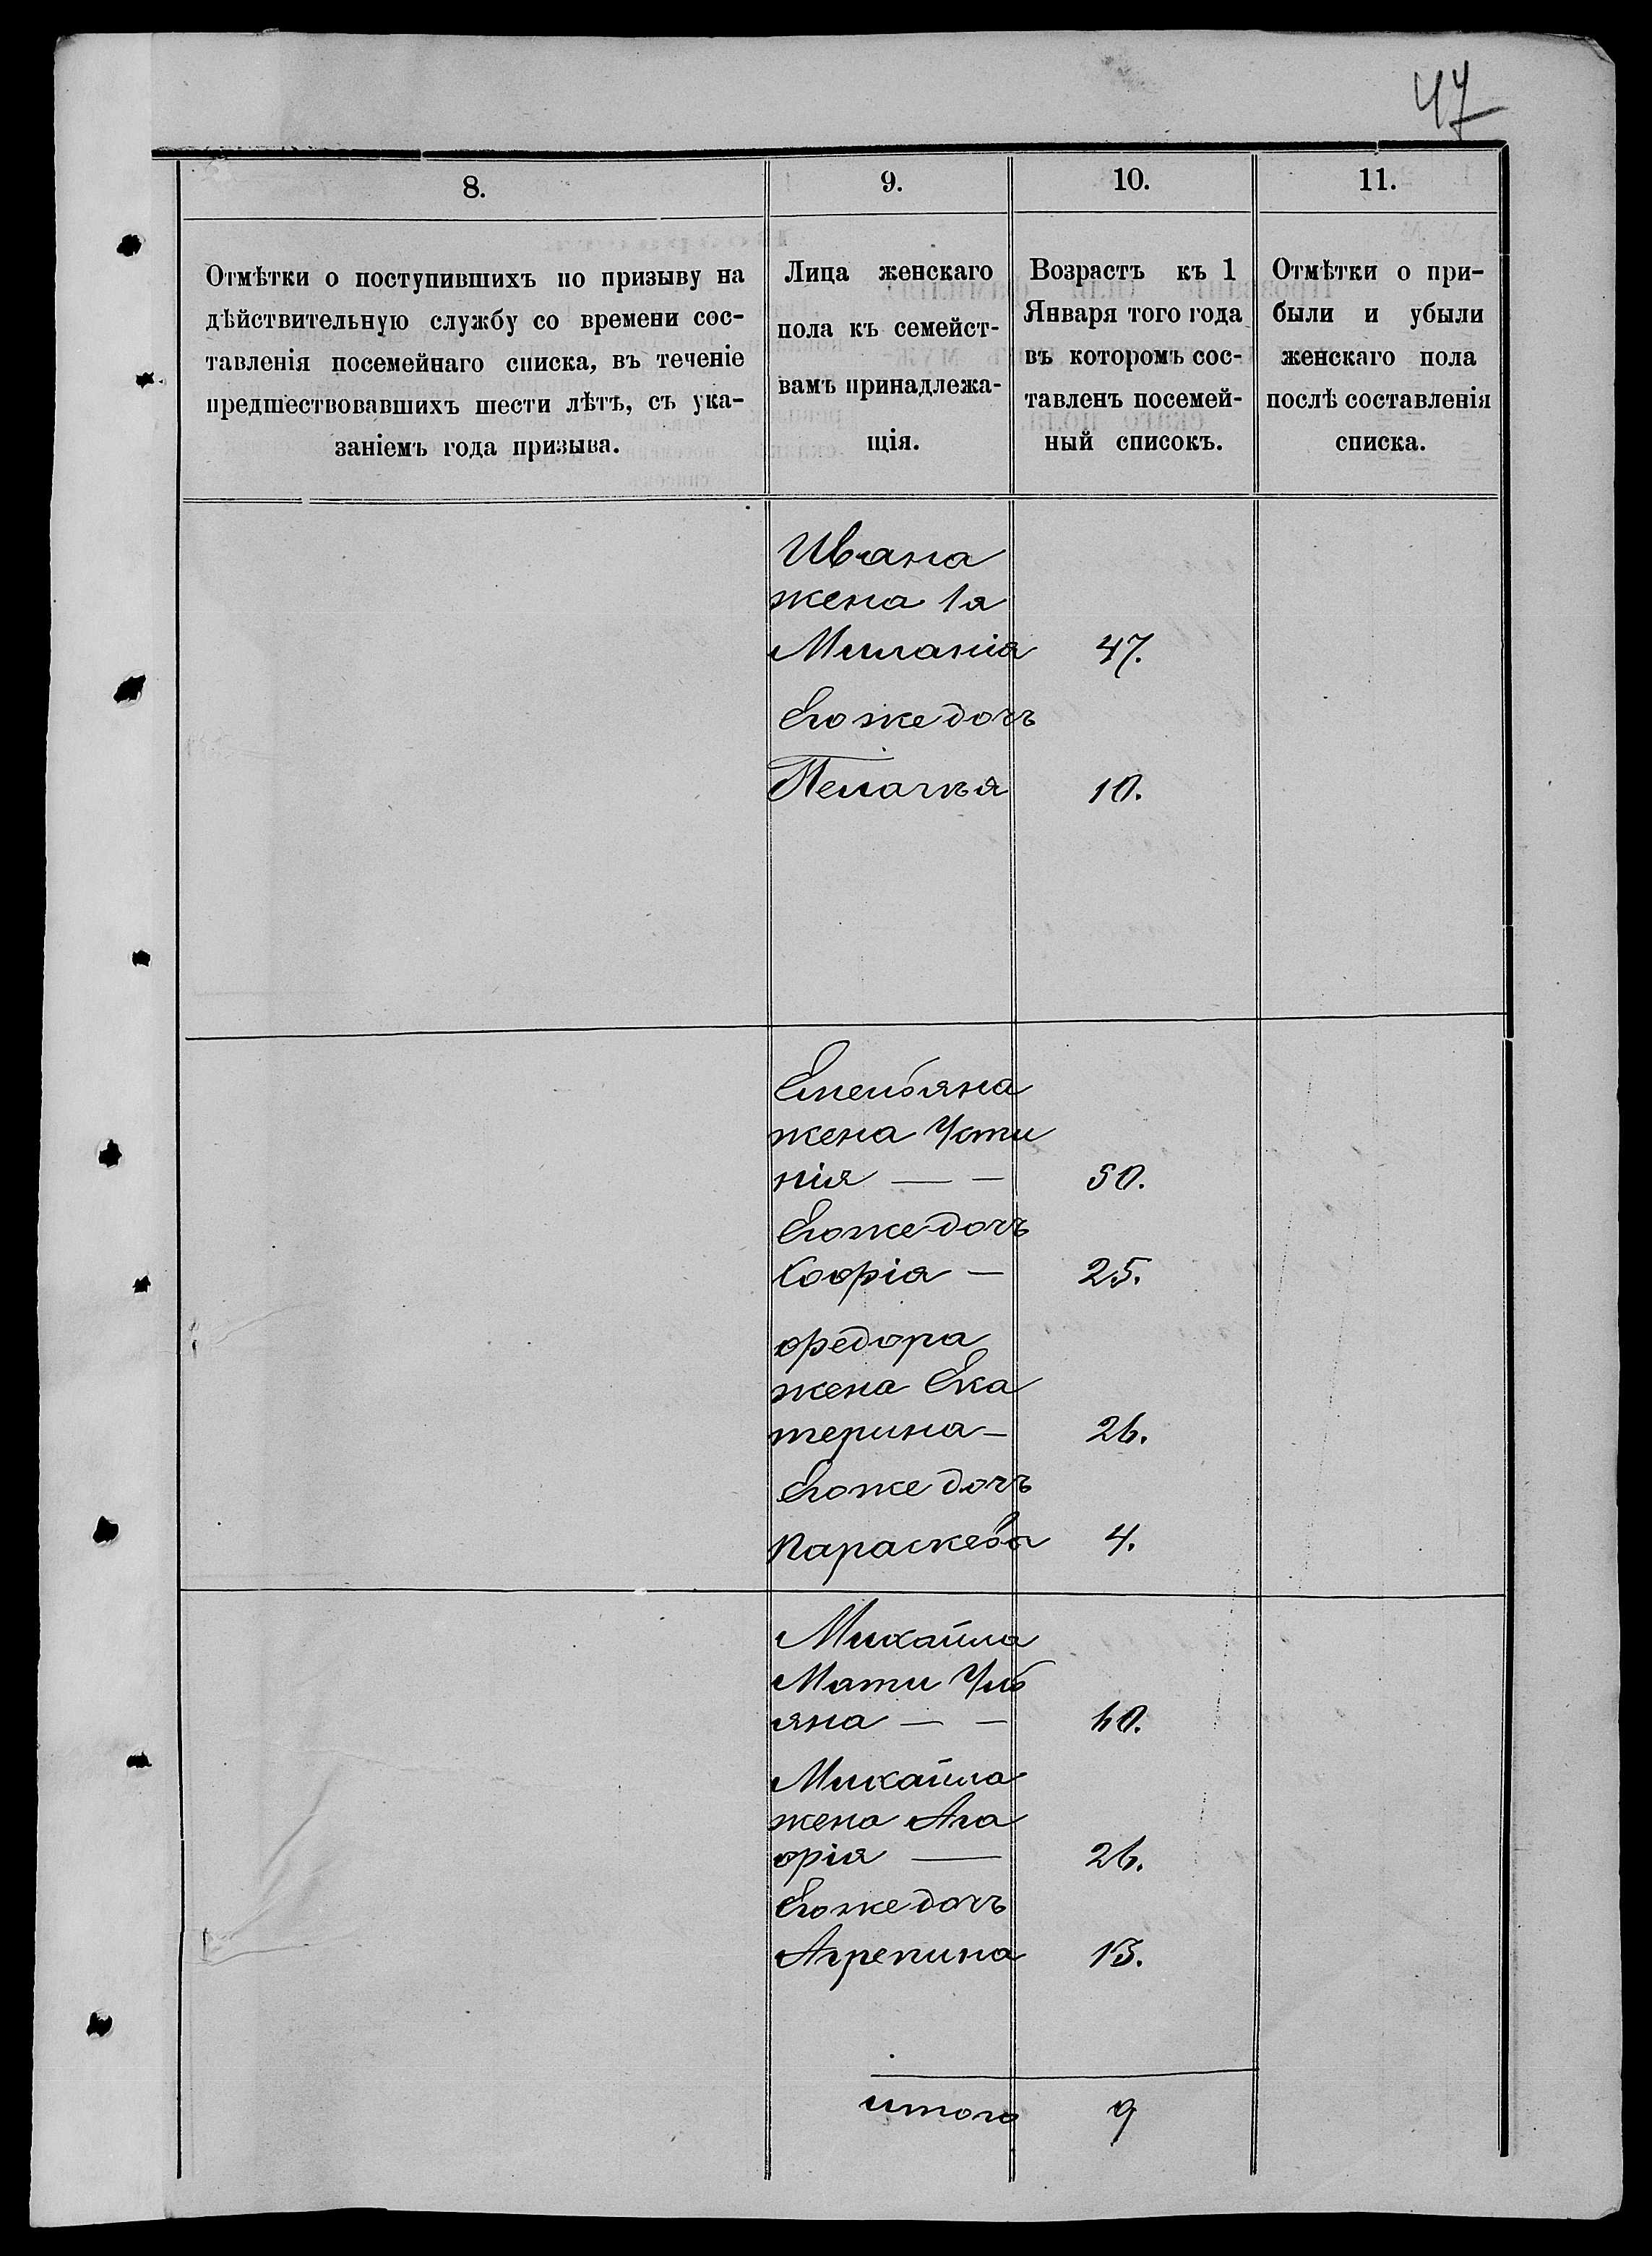 47
8.
9.
10.
11.
Отмѣтки о поступившихъ по призыву на
дѣйствительную службу со времени сос-
тавленія посемейнаго списка, въ теченіе
предшествовавшихъ шести лѣтъ, съ ука-
заніемъ года призыва.
Лица женскаго
пола къ семейст-
вамъ принадлежа-
щія.
Возрастъ къ 1
Января того года
въ которомъ сос-
тавленъ посемей-
ный списокъ.
Отмѣтки о при-
были и убыли
женскаго пола
послѣ составленія
списка.
Ивана
жена 1я
Миланія 47.
Его же дочъ
Пелагъя 10.
Емельяна
жена Усти
нія — — 50.
Его же дочъ
Софія — 25.
Федора
жена Ека
терина — 26.
Его же дочъ
Параскева 4.
Михайла
Мати Уль
яна — — 60.
Михайла
жена Ага
фія — 26.
Его же дочъ
Агрепина 13.
итого 9